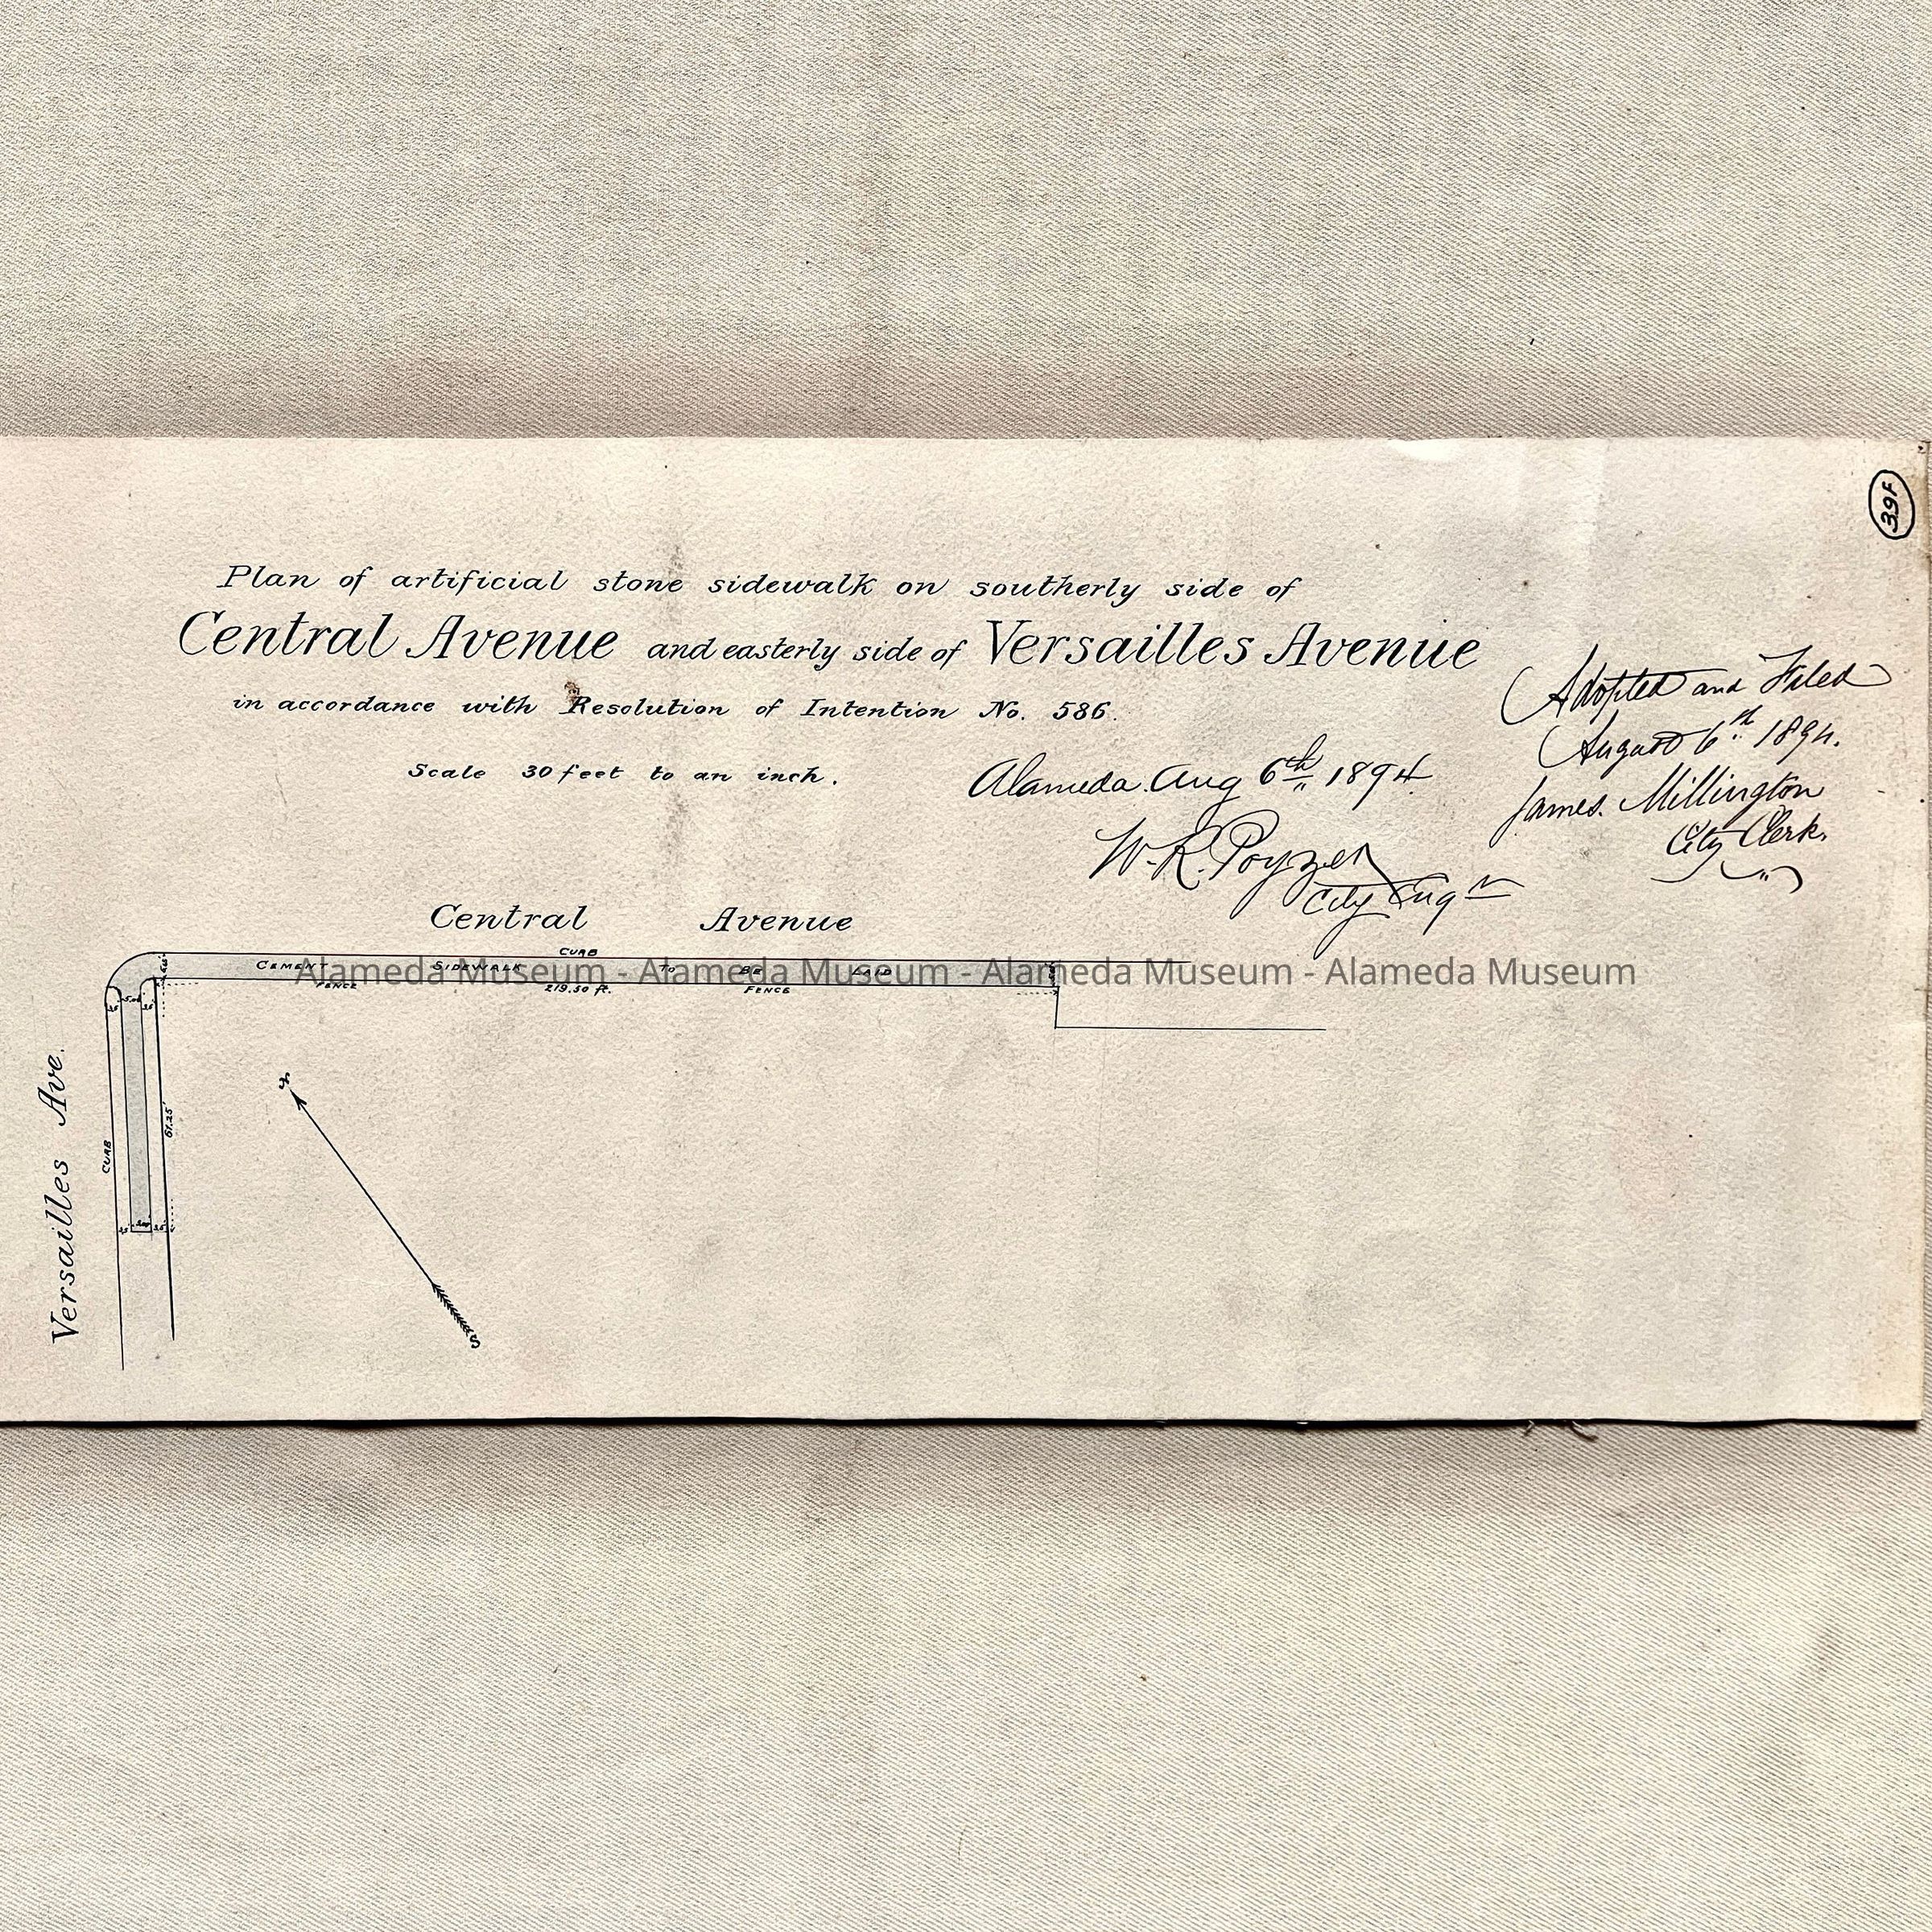 39F
Plan of artificial stone sidewalk on southerly side of
Central Avenue and easterly side of Versailles Avenue
in accordance with Resolution of Intention No. 586.
Scale 30 feet to an inch.
Alameda. Aug 6th 1894.
W. R. Poyzer
City Engr
Adopted and Filed
August 6th 1894.
James. Millington
City Clerk.
Central Avenue
CURB
CEMENT SIDEWALK TO BE LAID
FENCE 219.50 ft. FENCE
Alameda Museum - Alameda Museum - Alameda Museum - Alameda Museum
Versailles Ave.
CURB
S